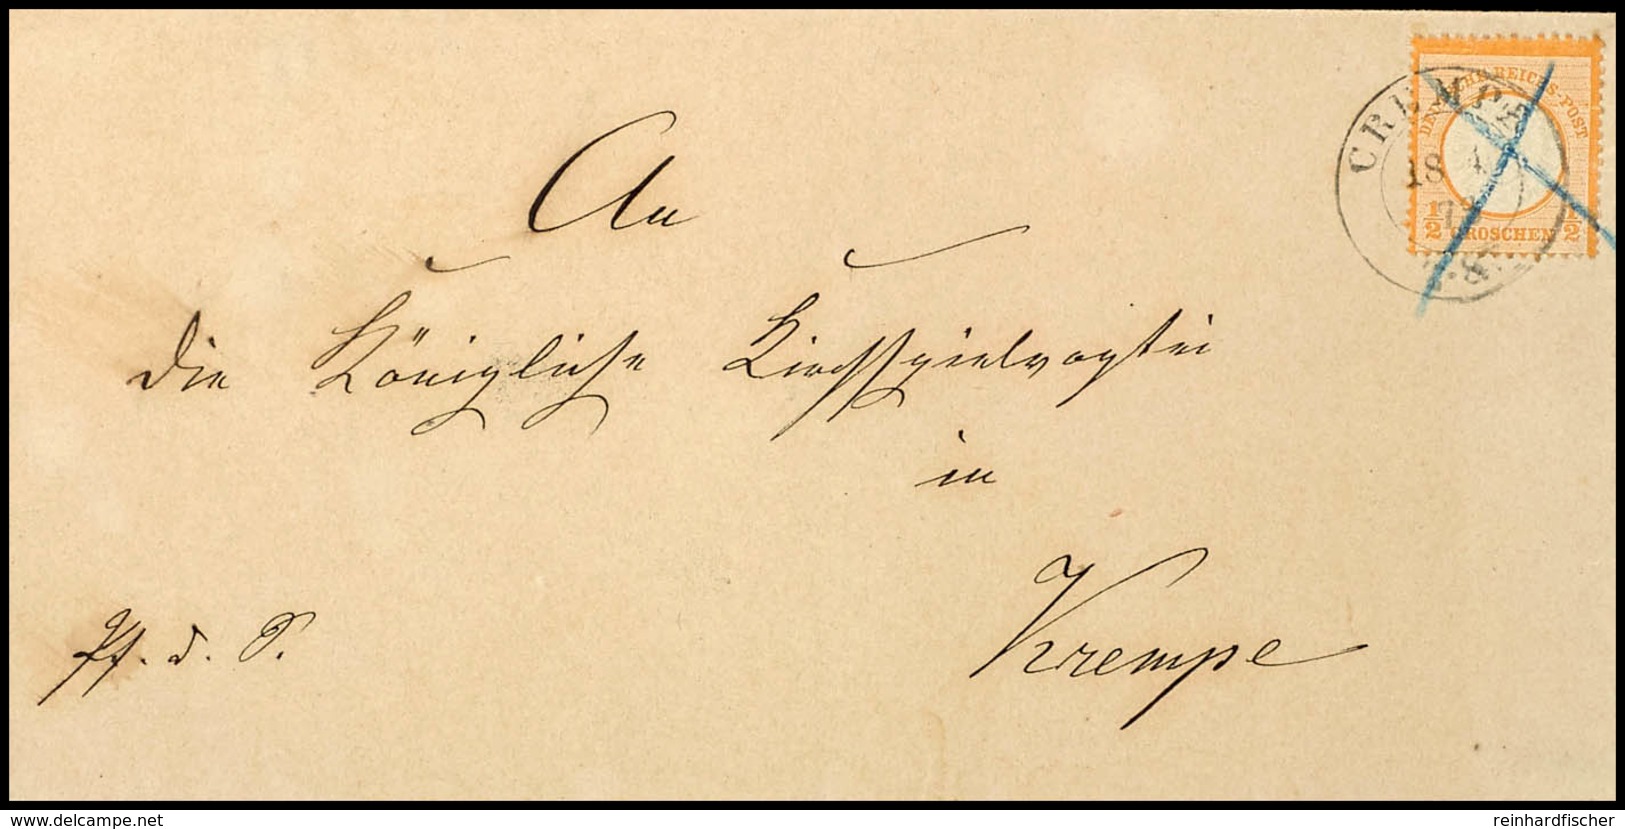 An
die Königliche Kirchspielvogtei
in
Krempe
DEUTSCHE REICHS-POST
1/2 GROSCHEN 1/2
CREMPE
18 4
www.delcampe.net
reinhardfischer